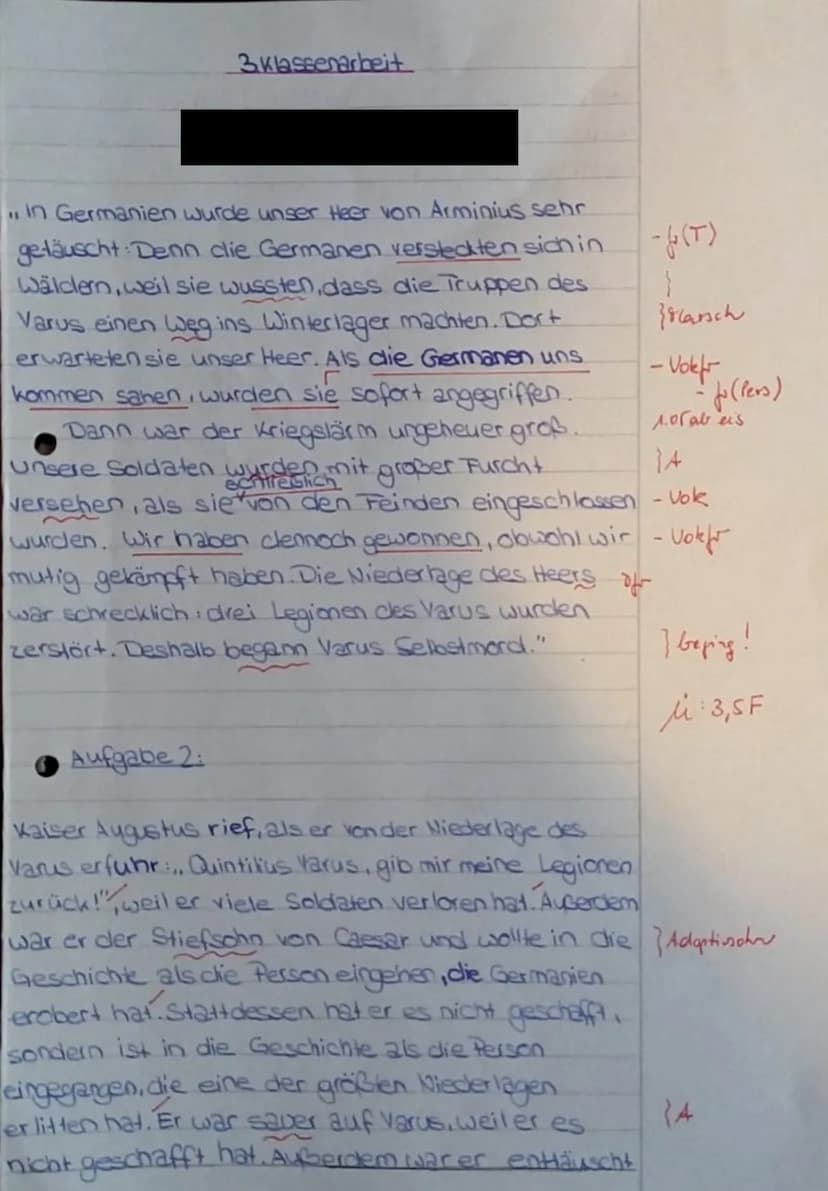 3 Klassenarbeit
„In Germanien wurde unser Heer von Arminius sehr
getäuscht: Denn die Germanen versteckten sich in
- f(T)
Wäldern, weil sie wussten, dass die Truppen des
Varus einen Weg ins Winterlager machten. Dort
Marsch
erwarteten sie unser Heer. Als die Germanen uns
- Vokfr
kommen sahen, wurden sie sofort angegriffen.
- f(Pers)
Dann war der Kriegslärm ungeheuer groß.
Unsere Soldaten wurden mit großer Furcht
A
schließlich
versehen, als sie von den Feinden eingeschlossen
- Vok
wurden. Wir haben dennoch gewonnen, obwohl wir
- Vokfr
mutig gekämpft haben. Die Niederlage des Heers
war schrecklich: drei Legionen des Varus wurden
zerstört. Deshalb begann Varus Selbstmord."
beging!
Aufgabe 2:
3,5F
Kaiser Augustus rief, als er von der Niederlage des
Varus erfuhr: „Quintilius Varus, gib mir meine Legionen
zurück!", weil er viele Soldaten verloren hat. Außerdem
war er der Stiefsohn von Caesar und wollte in die
Adoptivsohn
Geschichte als die Person eingehen, die Germanien
erobert hat. Stattdessen hat er es nicht geschafft,
sondern ist in die Geschichte als die Person
eingegangen, die eine der größten Niederlagen
erlitten hat. Er war sauer auf Varus, weil er es
A
nicht geschafft hat. Außerdem war er enttäuscht